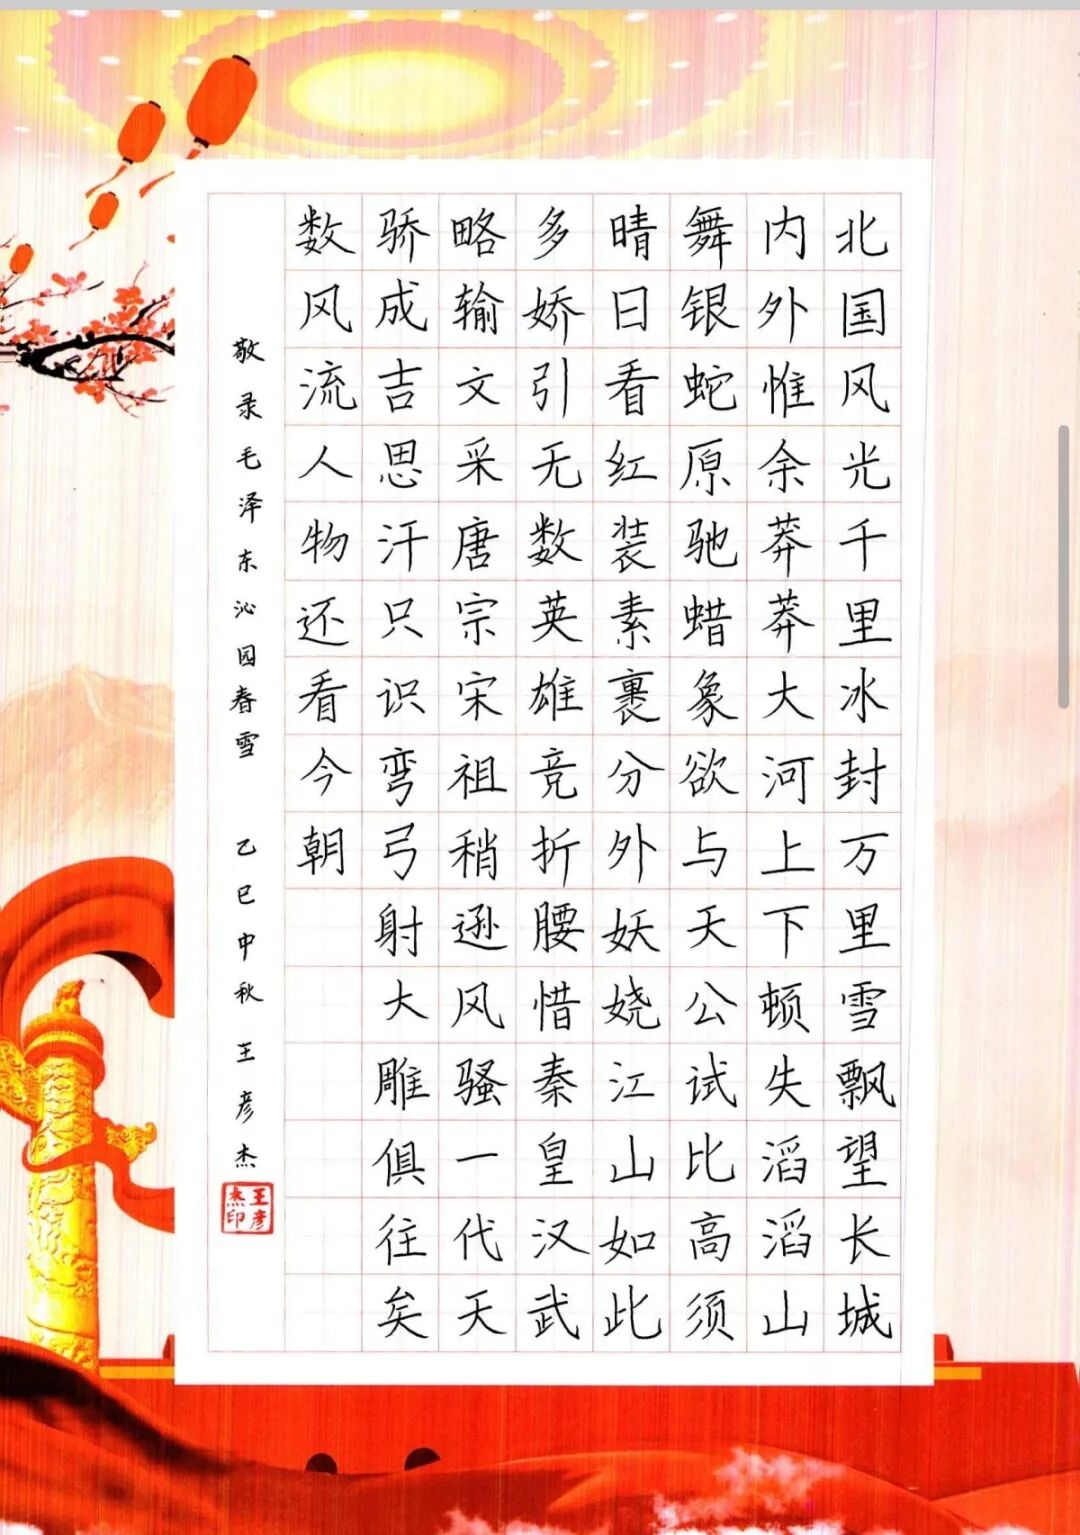 北国风光千里冰封万里雪飘望长城
内外惟余莽莽大河上下顿失滔滔山
舞银蛇原驰蜡象欲与天公试比高须
晴日看红装素裹分外妖娆江山如此
多娇引无数英雄竞折腰惜秦皇汉武
略输文采唐宗宋祖稍逊风骚一代天
骄成吉思汗只识弯弓射大雕俱往矣
数风流人物还看今朝
敬录毛泽东沁园春雪 乙巳中秋 王彦杰
王彦
杰印